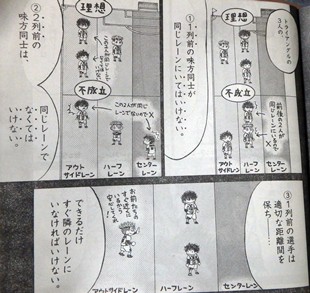 トライアングルの
3人の、
理想
①1列前の味方同士が
同じレーンにいてはいけない。
不成立
前後の2人が
同じレーンにいるから
×
アウト
サイドレーン
ハーフ
レーン
センター
レーン
理想
②2列前の
味方同士は、
不成立
この2人が同じ
レーンでないので×
同じレーンで
なくては
いけない。
アウト
サイドレーン
ハーフ
レーン
センター
レーン
③1列前の選手は
適切な距離間を
保ち
できるだけ
すぐ隣のレーンに
いなければいけない。
アウトサイドレーン
ハーフレーン
センターレーン